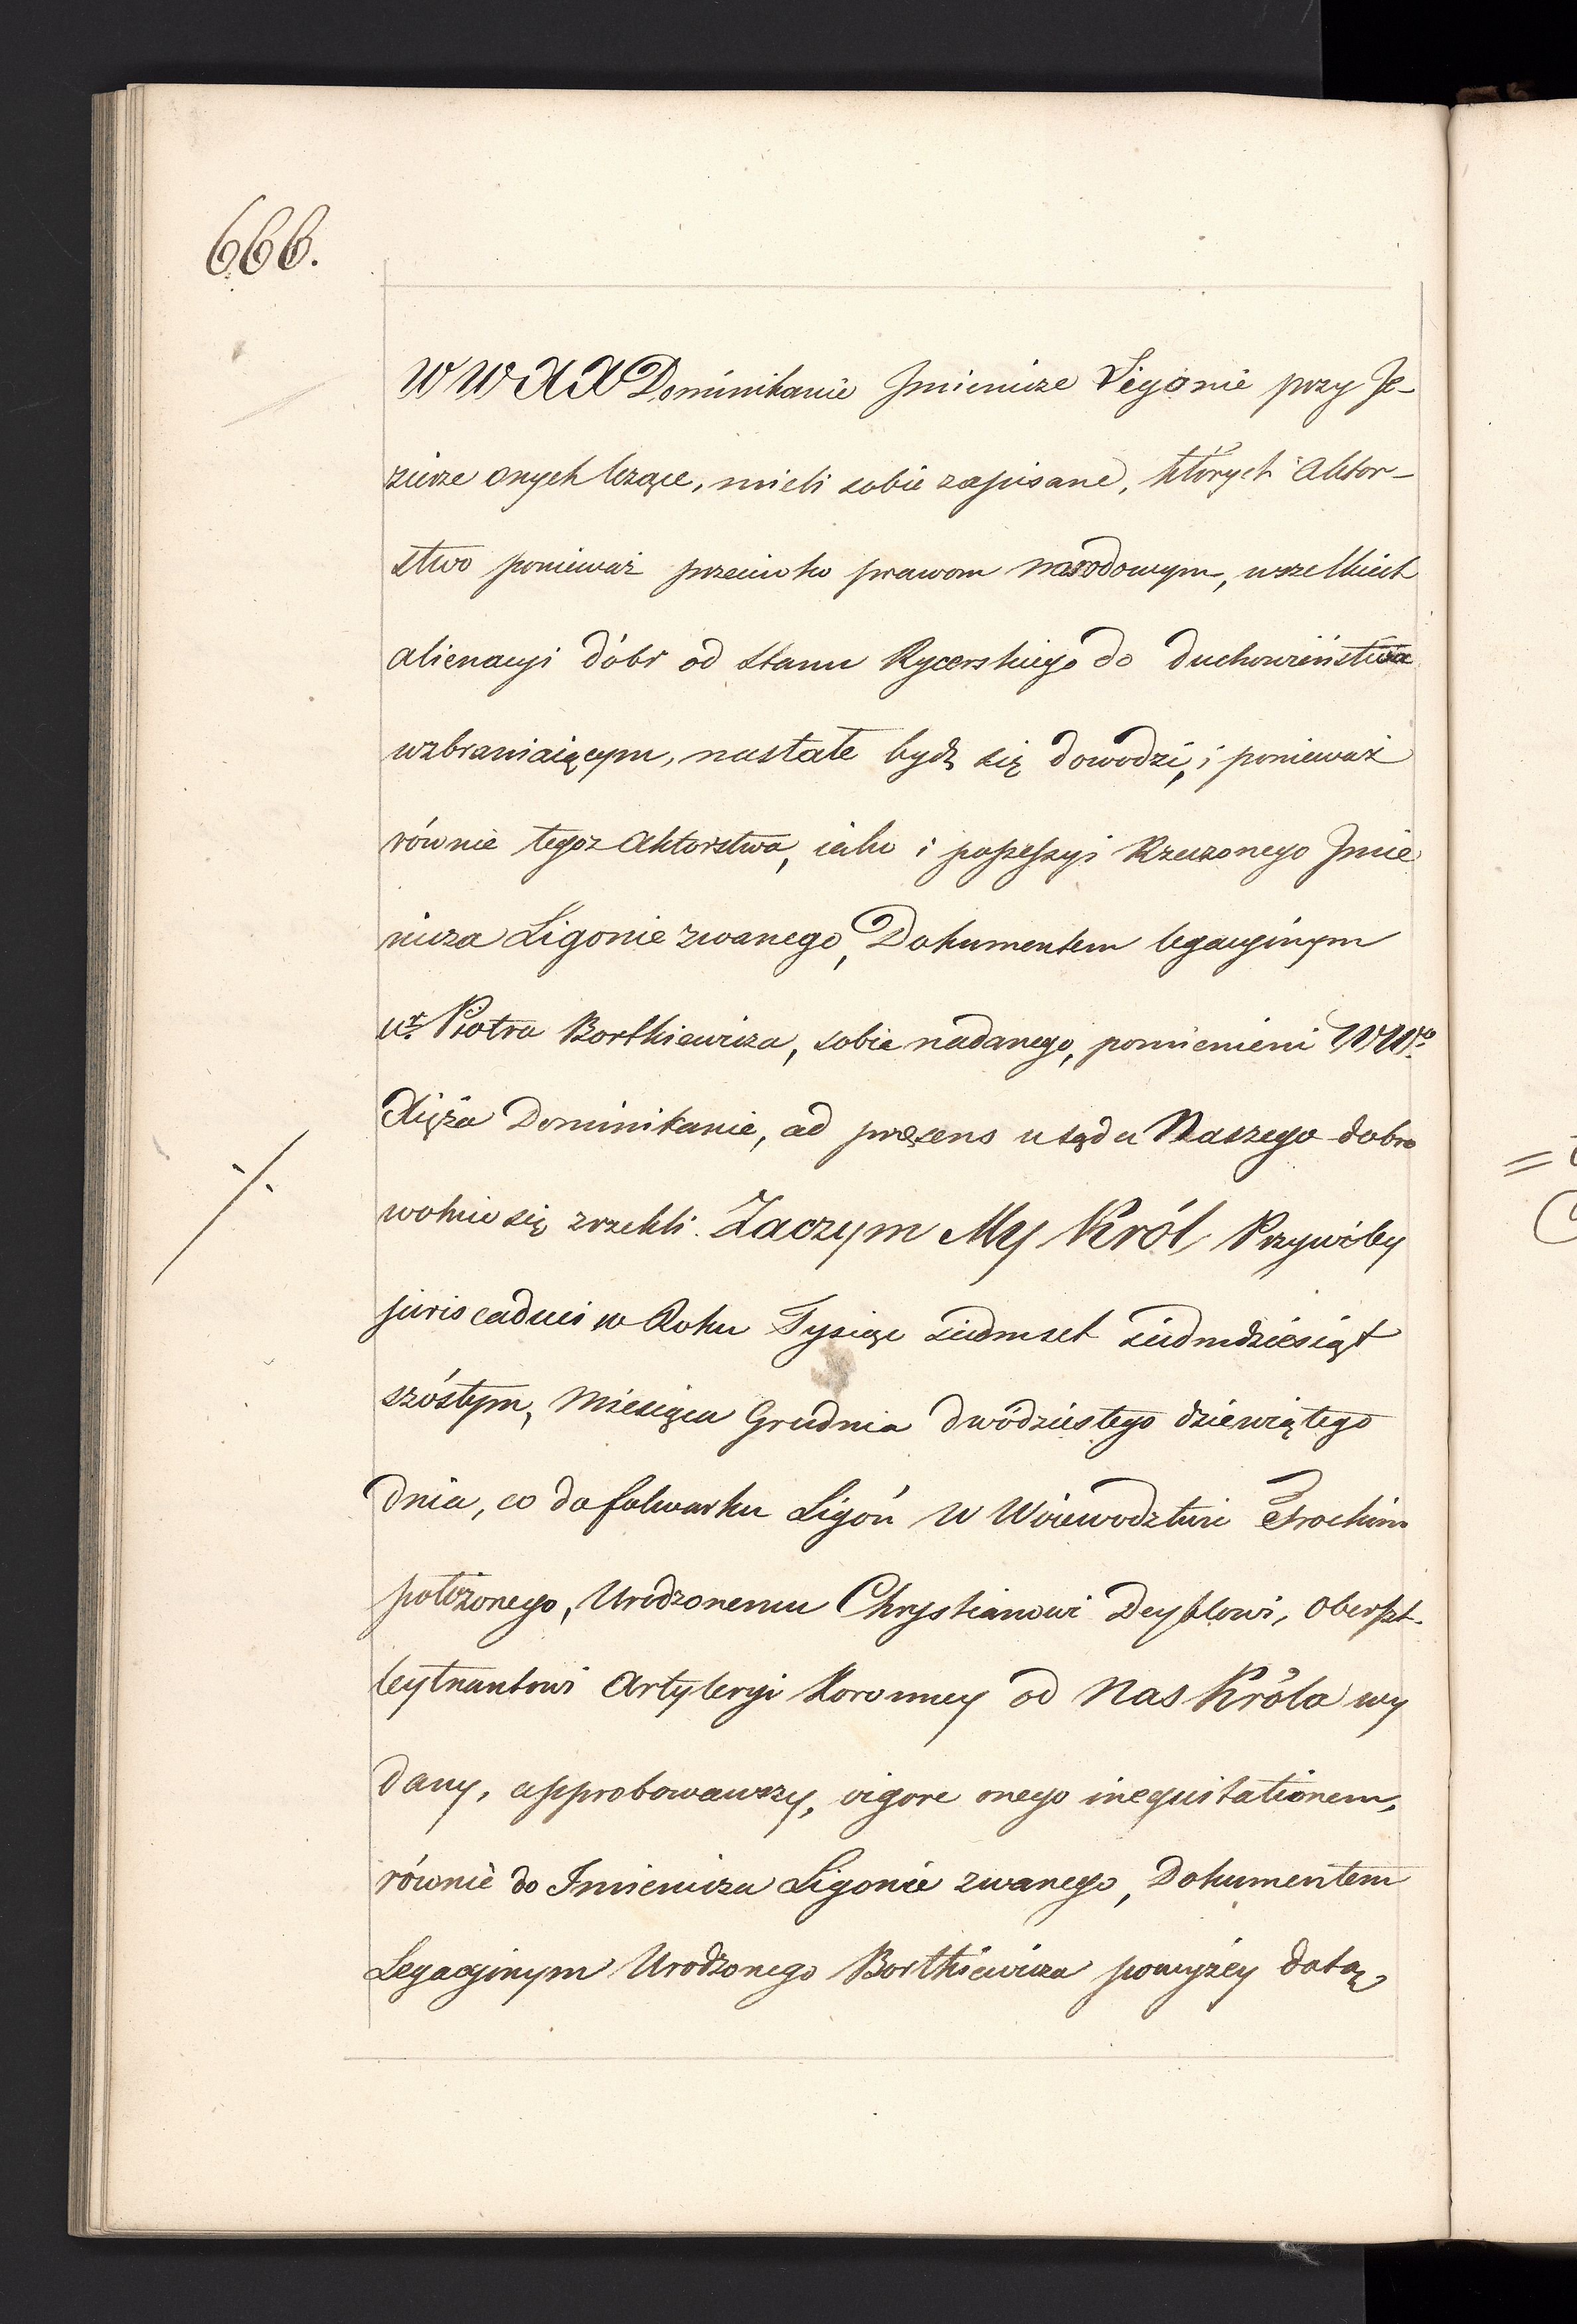 666.
W W X X Dominikanie Jmienicze Ligonie przy Je-
ziorze onych lezące, mieli sobie zapisane, których Aktor-
stwo ponieważ przeciwko prawom narodowym, wszelkich
alienacyi dóbr od Stanu Rycerskiego do duchowieństwa
wzbraniaiącym, nastałe bydź się dowodzi, i ponieważ
równie tegoż Aktorstwa, iako i possessyi Rzeczonego Jmie
nicza Ligonie zwanego, Dokumentem legacyinym
ur. Piotra Bortkiewicza, sobie nadanego, pomienieni WW.
Xięża Dominikanie, ad præsens u sądu Naszego dobro
wolnie się zrzekli. Zaczym My Król, Przywiley
juris caduci w Roku Tysiąc siedmset siedmdziesiąt
szóstym, Miesiąca Grudnia dwódziestego dziewiątego
dnia, co do folwarku Ligoń w Woiewodztwie Trockim
położonego, Urodzonemu Chrystianowi Deyblowi, Oberszt-
leytnantowi Artyleryi Koronney od Nas Króla wy
dany, approbowawszy, vigore onego inequitationem,
równie do Imienicza Ligonie zwanego, Dokumentem
Legacyinym Urodzonego Bortkiewicza powyżéy datą